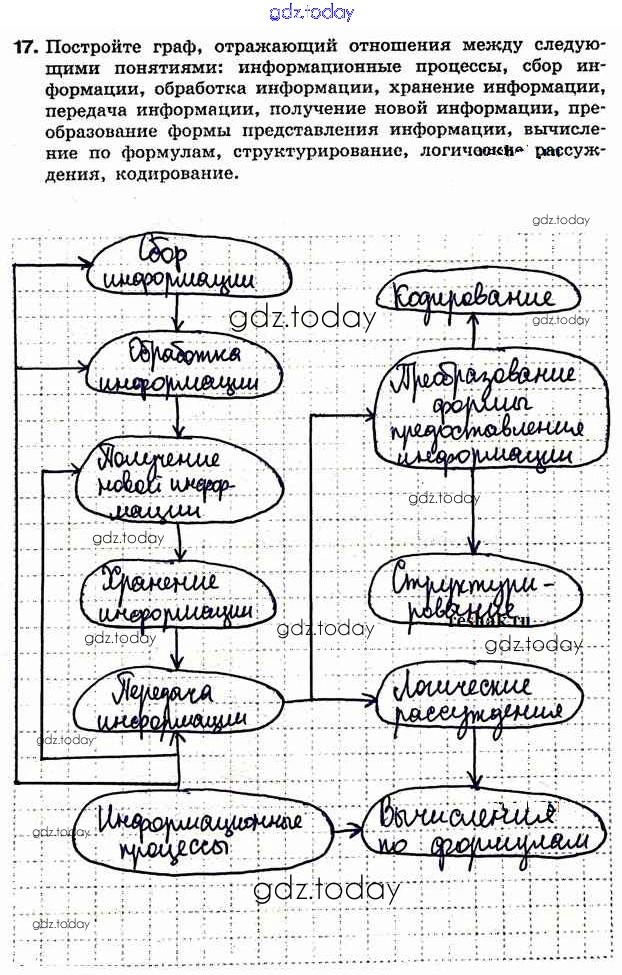 gdz.today
17. Постройте граф, отражающий отношения между следую-
щими понятиями: информационные процессы, сбор ин-
формации, обработка информации, хранение информации,
передача информации, получение новой информации, пре-
образование формы представления информации, вычисле-
ние по формулам, структурирование, логические рассуж-
дения, кодирование.
gdz.today
Сбор
информации
Кодирование
gdz.today
gdz.today
Обработка
информации
Преобразование
формы
предоставления
информации
Получение
новой инфор-
мации
gdz.today
gdz.today
Хранение
информации
Структури-
рование
reshak.ru
gdz.today
gdz.today
gdz.today
Передача
информации
Логические
рассуждения
gdz.today
Информационные
процессы
Вычисления
по формулам
gdz.today
gdz.today
gdz.today